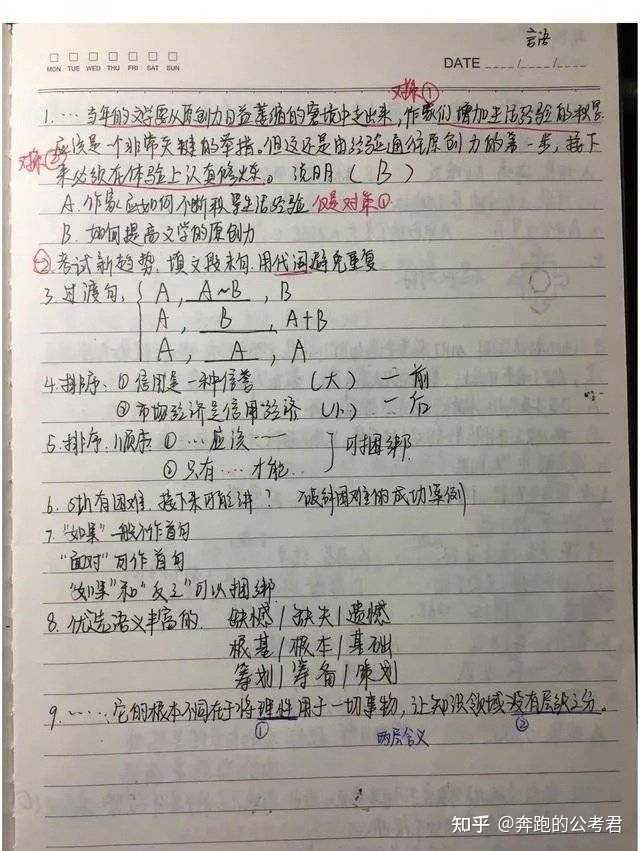 言语
MON TUE WED THU FRI SAT SUN
DATE ____/____/____
对策①
1.…当年的文学要从原创力日益萎缩的窘境中走出来,作家们增加生活经验的积累
应该是一个非常关键的举措。但这还是由经验通往原创力的第一步,接下
对策②
来必须在体验上认真修炼。说明(B)
A.作家应如何不断积累生活经验 仅是对策①
B.如何提高文学的原创力
2.考试新趋势,填文段末句,用代词避免重复
3.过渡句, A, A~B, B
A, B, A+B
A, A, A
4.排序,①信用是一种信誉 (大)一前
②市场经济是信用经济 (小)一后
5.排序,顺序 ①…应该…
②只有…才能… 可捆绑
6.所有困难,接下来可能讲? 倾斜困难的成功案例
7."如果"一般不作首句
"面对"可作首句
"如果"和"反之"可以捆绑
8.优选语义丰富的 缺憾/缺失/遗憾
根基/根本/基础
筹划/筹备/策划
9.……它的根本不同在于将理性用于一切事物,让知识领域没有层级之分。
① 两层含义 ②
知乎 @奔跑的公考君